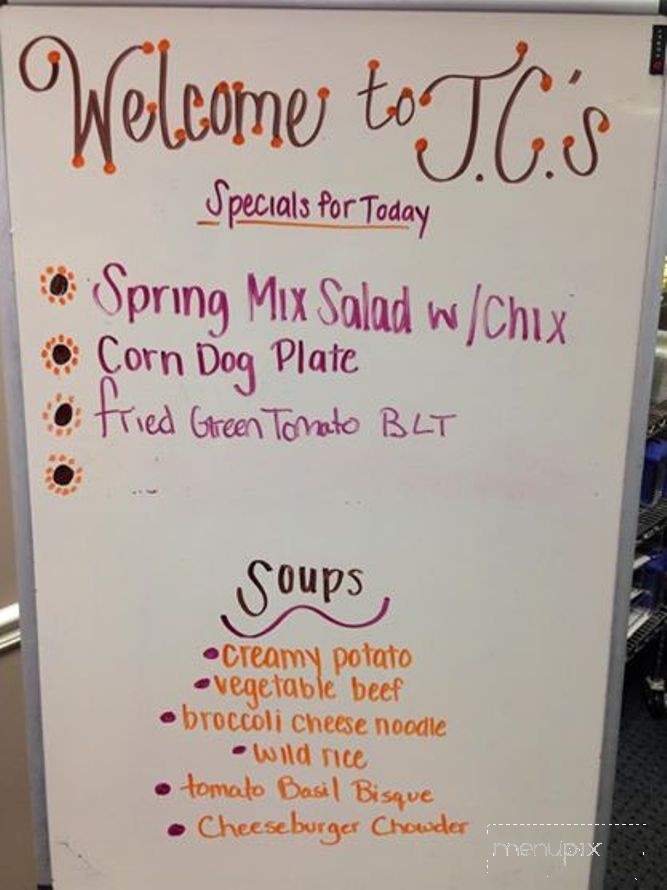 Welcome to J.C.'s
Specials for Today
Spring Mix Salad w/Chix
Corn Dog Plate
Fried Green Tomato BLT
Soups
creamy potato
vegetable beef
broccoli cheese noodle
wild rice
tomato Basil Bisque
Cheeseburger Chowder
menupix